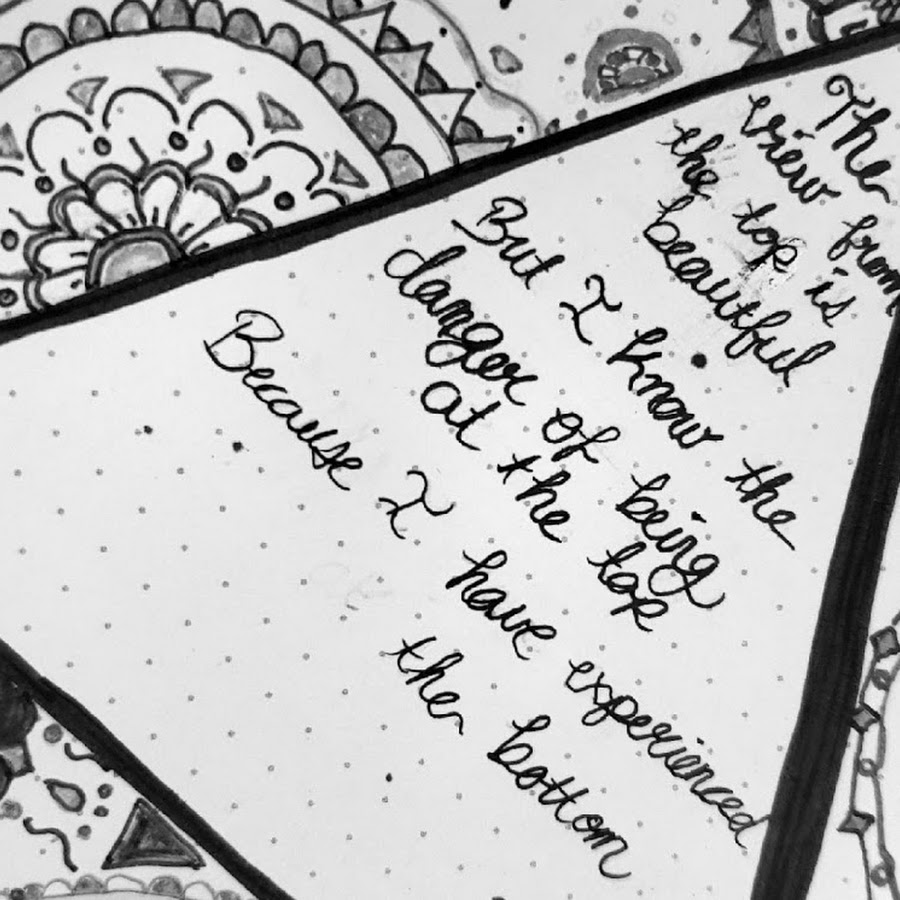 The
view from
the top is
beautiful
But I know the
danger of being
at the top
Because I have experienced
the bottom